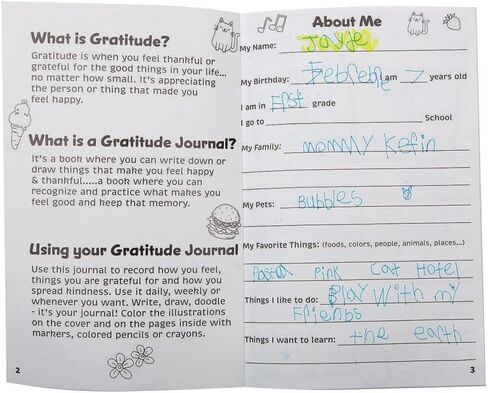 What is Gratitude?
Gratitude is when you feel thankful or
grateful for the good things in your life...
no matter how small. It's appreciating
the person or thing that made you
feel happy.
What is a Gratitude Journal?
It's a book where you can write down or
draw things that make you feel happy
& thankful.....a book where you can
recognize and practice what makes you
feel good and keep that memory.
Using your Gratitude Journal
Use this journal to record how you feel,
things you are grateful for and how you
spread kindness. Use it daily, weekly or
whenever you want. Write, draw, doodle
- it's your journal! Color the illustrations
on the cover and on the pages inside with
markers, colored pencils or crayons.
2
About Me
My Name:
My Birthday: Febreble I am 7 years old
I am in First grade
I go to School
My Family: mommy Kefin
My Pets: Bubbles
My Favorite Things: (foods, colors, people, animals, places...)
Pasta Pink Cat Hotel
Things I like to do: Play With my
Frienbs
Things I want to learn: the earth
3